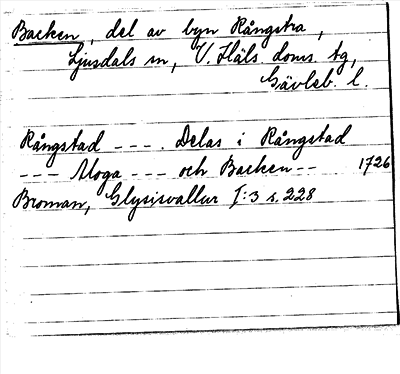 Backen, del av byn Rångstra,
Ljusdals sn, V. Häls. doms. tg,
Gävleb. l.
Rångstad ---. Delas i Rångstad
--- Moga --- och Backen -- 1726
Broman, Glysisvallur I:3 s. 228